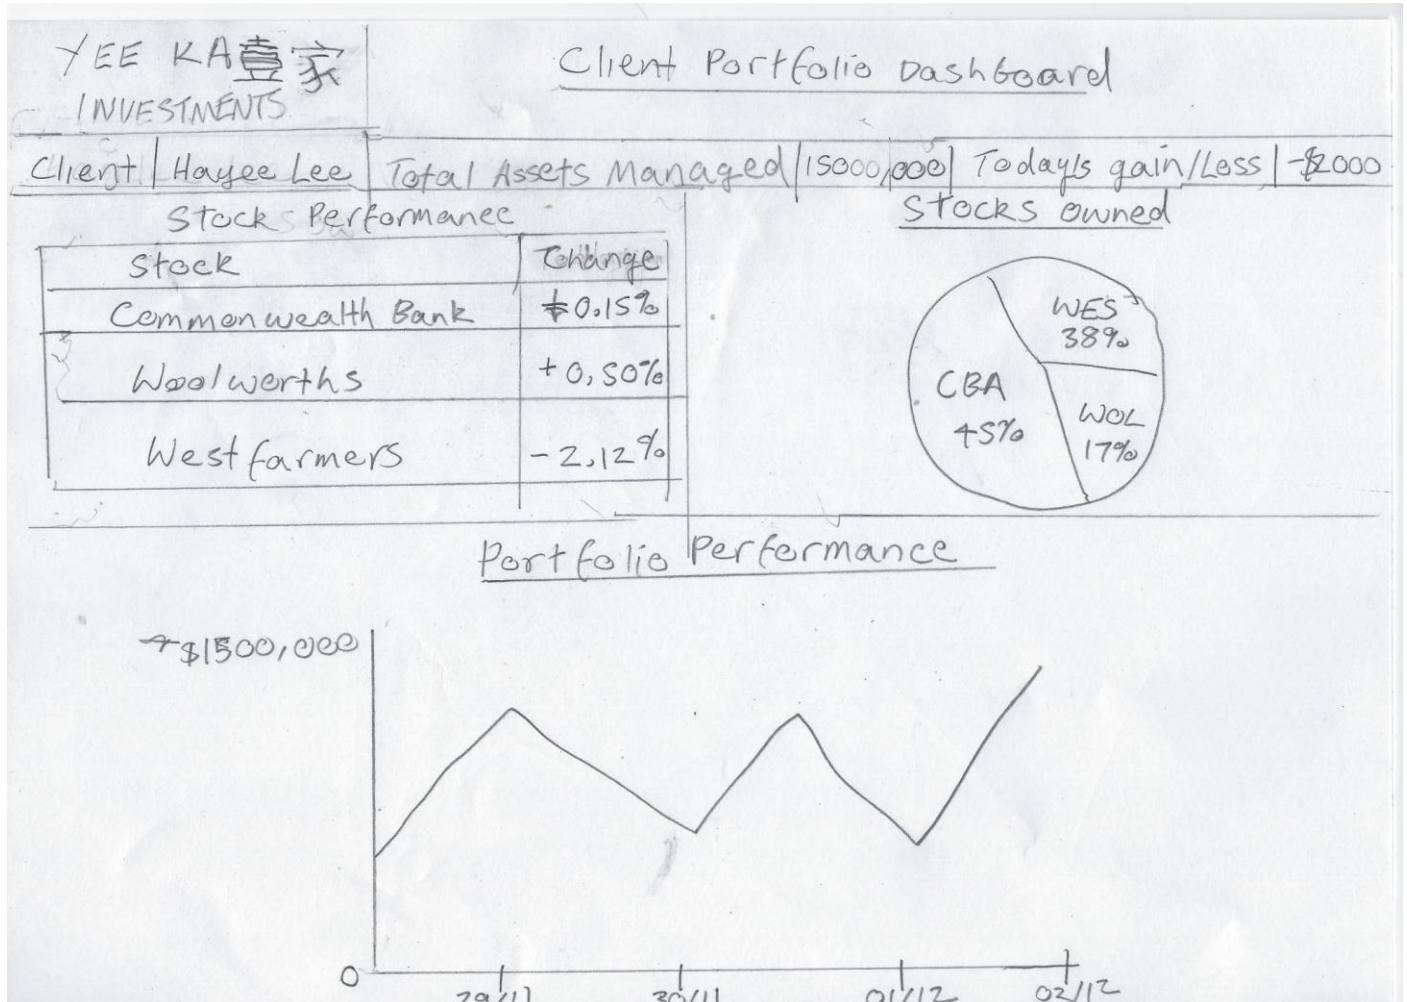 YEE KA壹家
INVESTMENTS
Client Portfolio Dashboard
Client Hayee Lee Total Assets Managed 15000,000 Today's gain/Loss -$2000
Stocks Performance
Stock Change
Commonwealth Bank +0.15%
Woolworths +0.50%
Westfarmers -2.12%
Stocks owned
WES
38%
CBA
45%
WOL
17%
Portfolio Performance
$1500,000
0
29/11 30/11 01/12 02/12